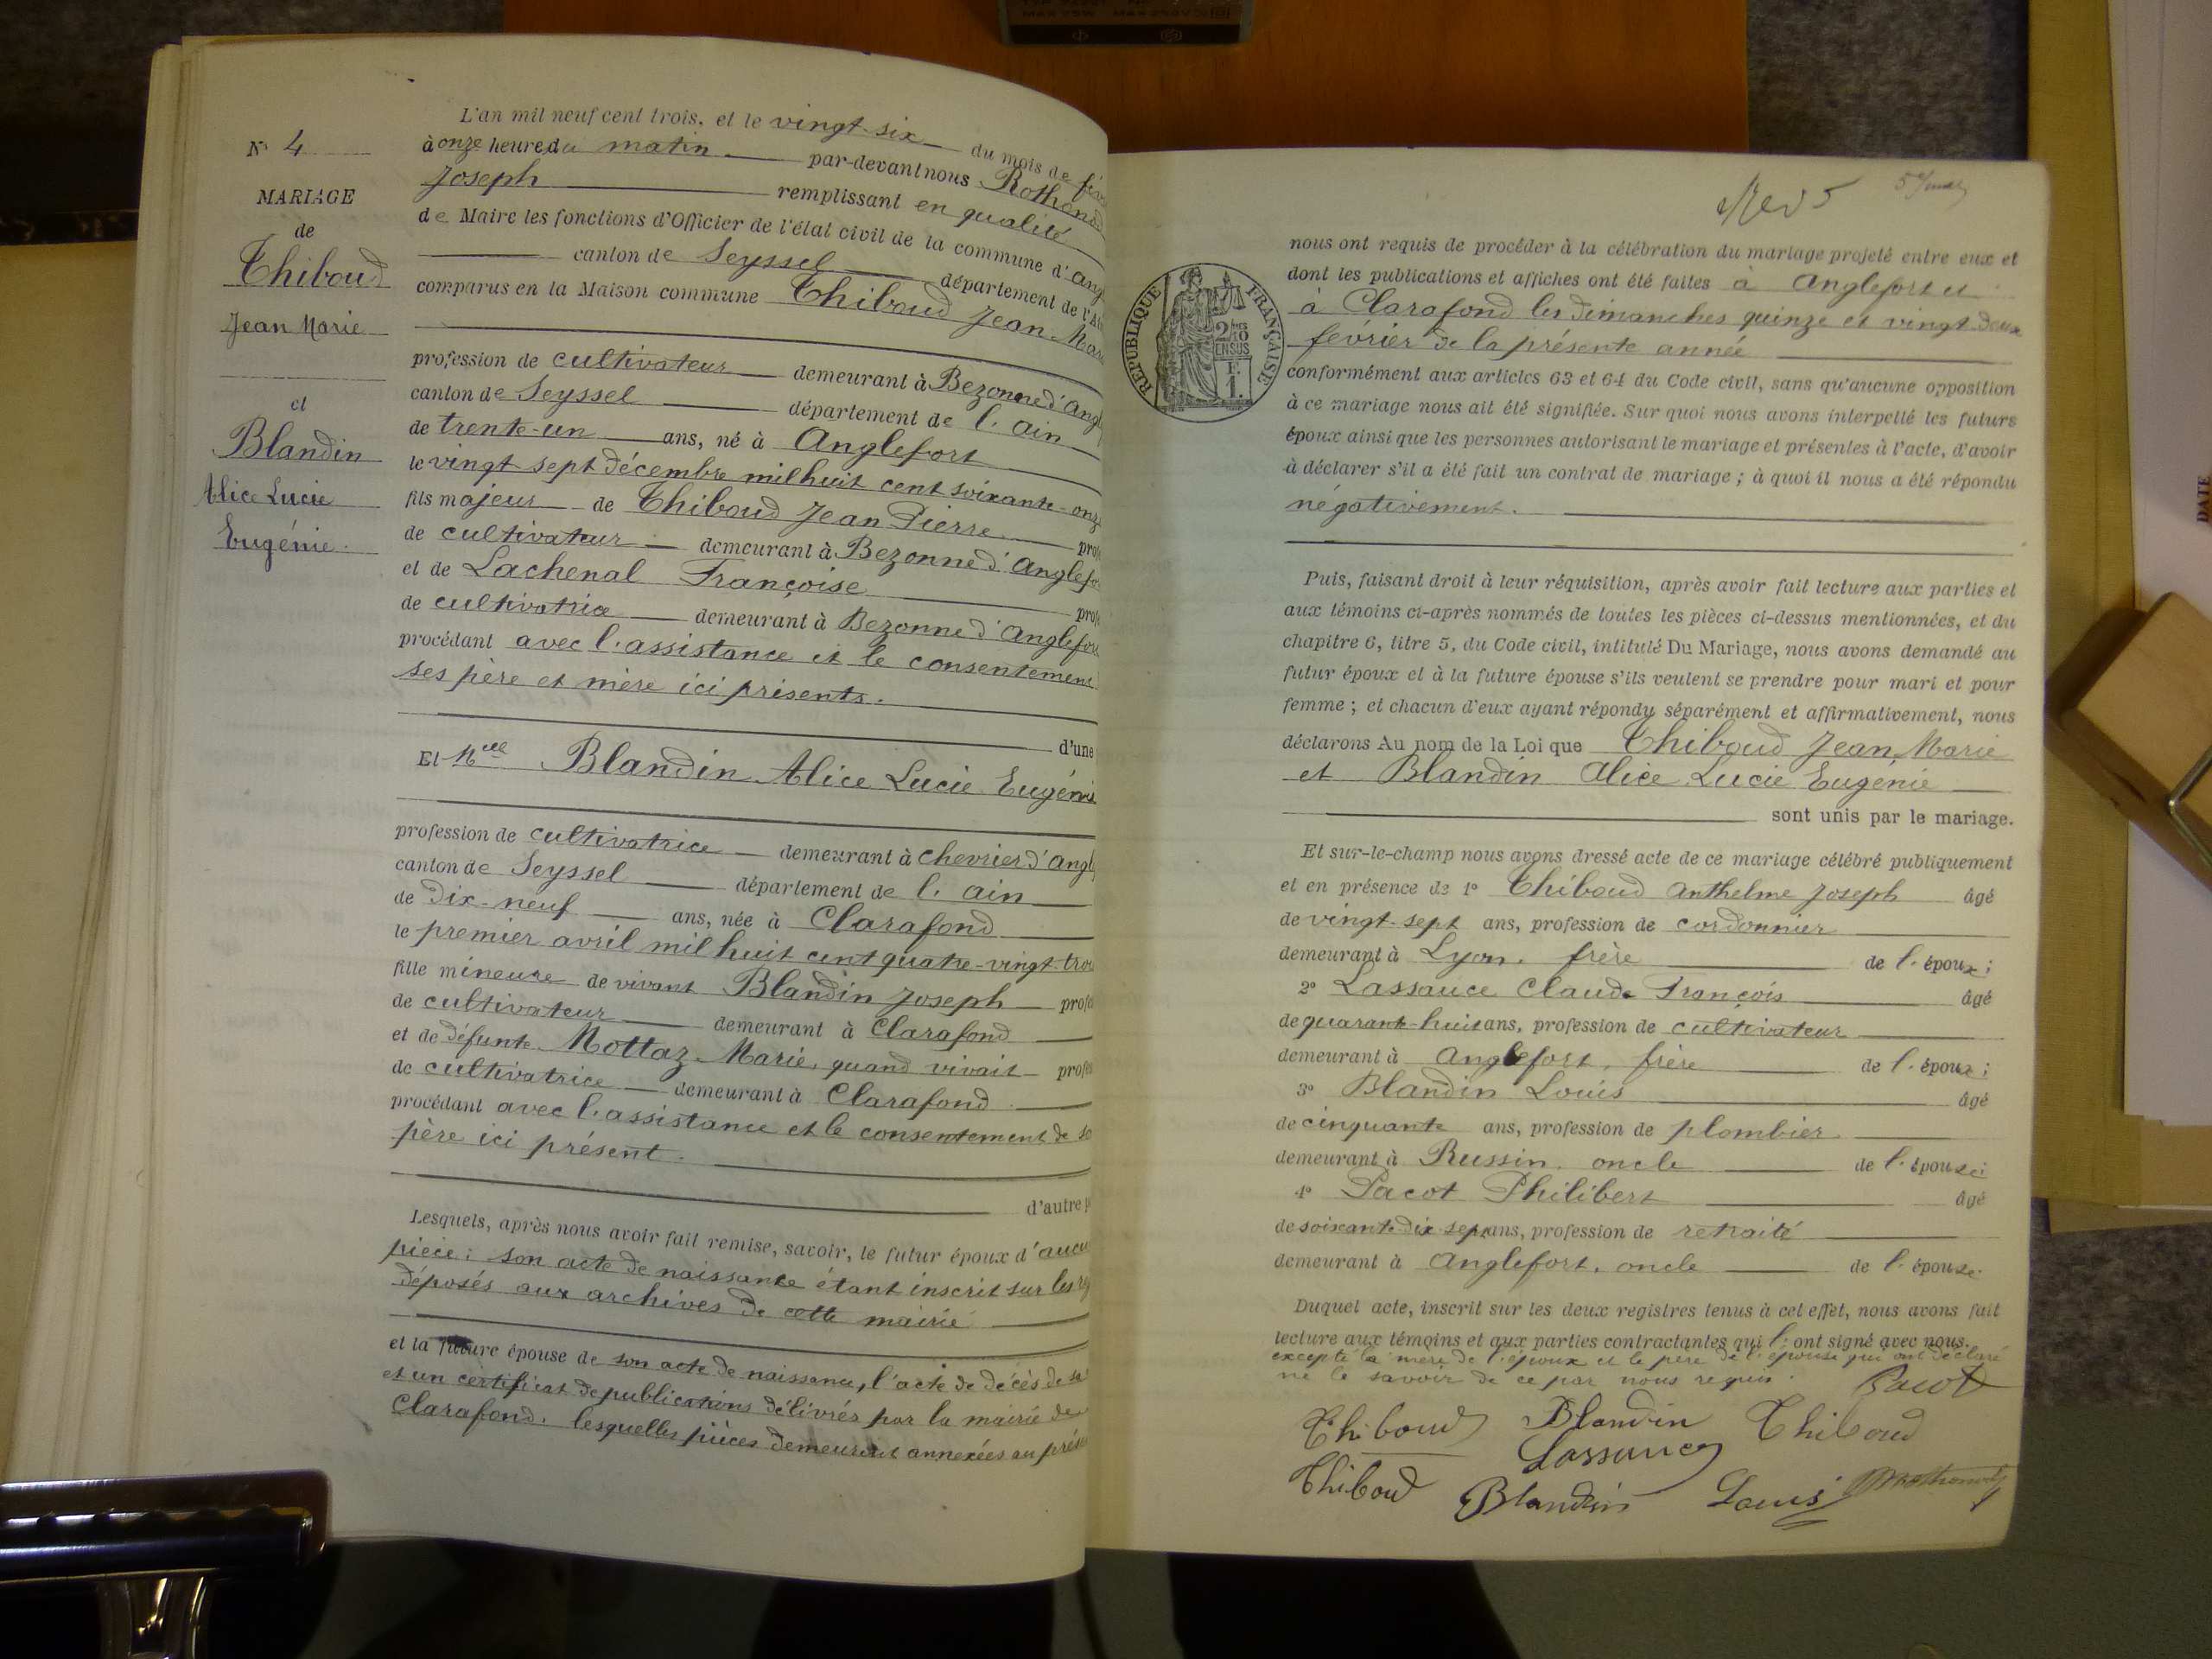 N° 4
MARIAGE
de
Thiboud
Jean Marie
et
Blandin
Alice Lucie
Eugénie
L'an mil neuf cent trois, et le vingt-six du mois de
à onze heure du matin par-devant nous
Joseph remplissant en qualité
de Maire les fonctions d'Officier de l'état civil de la commune d'
canton de Seyssel département de
comparus en la Maison commune Thiboud Jean
profession de cultivateur demeurant à Bezonne d'
canton de Seyssel département de l'ain
de trente-un ans, né à Anglefort
le vingt sept décembre mil huit cent soixante-
fils majeur de Thiboud Jean Pierre
de cultivateur demeurant à Bezonne d'
et de Lachenal Françoise
de cultivatrice demeurant à Bezonne d'
procédant avec l'assistance et le consentement
ses père et mère ici présents.
d'une
Et Melle Blandin Alice Lucie Eugénie
profession de cultivatrice demeurant à chevrier d'
canton de Seyssel département de l'ain
de dix-neuf ans, née à Clarafond
le premier avril mil huit cent quatre-vingt-
fille mineure de vivant Blandin Joseph
de cultivateur demeurant à Clarafond
et de défunte Mottaz Marie, quand vivait
de cultivatrice demeurant à Clarafond
procédant avec l'assistance et le consentement de
père ici présent.
d'autre
Lesquels, après nous avoir fait remise, savoir, le futur époux d'
pièce; son acte de naissance étant inscrit sur les
déposés aux archives de cette mairie
et la future épouse de son acte de naissance, l'acte de décès de sa
et un certificat de publications délivrés par la mairie de
Clarafond. lesquelles pièces demeurent annexées au
nous ont requis de procéder à la célébration du mariage projeté entre eux et
dont les publications et affiches ont été faites à Anglefort et
à Clarafond les dimanches quinze et vingt-deux
février de la présente année
conformément aux articles 63 et 64 du Code civil, sans qu'aucune opposition
à ce mariage nous ait été signifiée. Sur quoi nous avons interpellé les futurs
époux ainsi que les personnes autorisant le mariage et présentes à l'acte, d'avoir
à déclarer s'il a été fait un contrat de mariage; à quoi il nous a été répondu
négativement.
Puis, faisant droit à leur réquisition, après avoir fait lecture aux parties et
aux témoins ci-après nommés de toutes les pièces ci-dessus mentionnées, et du
chapitre 6, titre 5, du Code civil, intitulé Du Mariage, nous avons demandé au
futur époux et à la future épouse s'ils veulent se prendre pour mari et pour
femme; et chacun d'eux ayant répondu séparément et affirmativement, nous
déclarons Au nom de la Loi que Thiboud Jean Marie
et Blandin Alice Lucie Eugénie
sont unis par le mariage.
Et sur-le-champ nous avons dressé acte de ce mariage célébré publiquement
et en présence de 1° Thiboud Anthelme Joseph âgé
de vingt-sept ans, profession de cordonnier
demeurant à Lyon. frère de l'époux;
2° Lassauce Claude François âgé
de quarante-huit ans, profession de cultivateur
demeurant à Anglefort, frère de l'époux;
3° Blandin Louis âgé
de cinquante ans, profession de plombier
demeurant à Russin. oncle de l'épouse;
4° Pacot Philibert âgé
de soixante-dix-sept ans, profession de retraité
demeurant à Anglefort, oncle de l'épouse.
Duquel acte, inscrit sur les deux registres tenus à cet effet, nous avons fait
lecture aux témoins et aux parties contractantes qui l'ont signé avec nous.
excepté la mère de l'époux et le père de l'épouse qui ont déclaré
ne le savoir de ce par nous requis.
Pacot
Thiboud Blandin Thiboud
Lassauce
Thiboud Blandin Louis
RÉPUBLIQUE FRANÇAISE
2/10 EN SUS
F. 1.
DATE